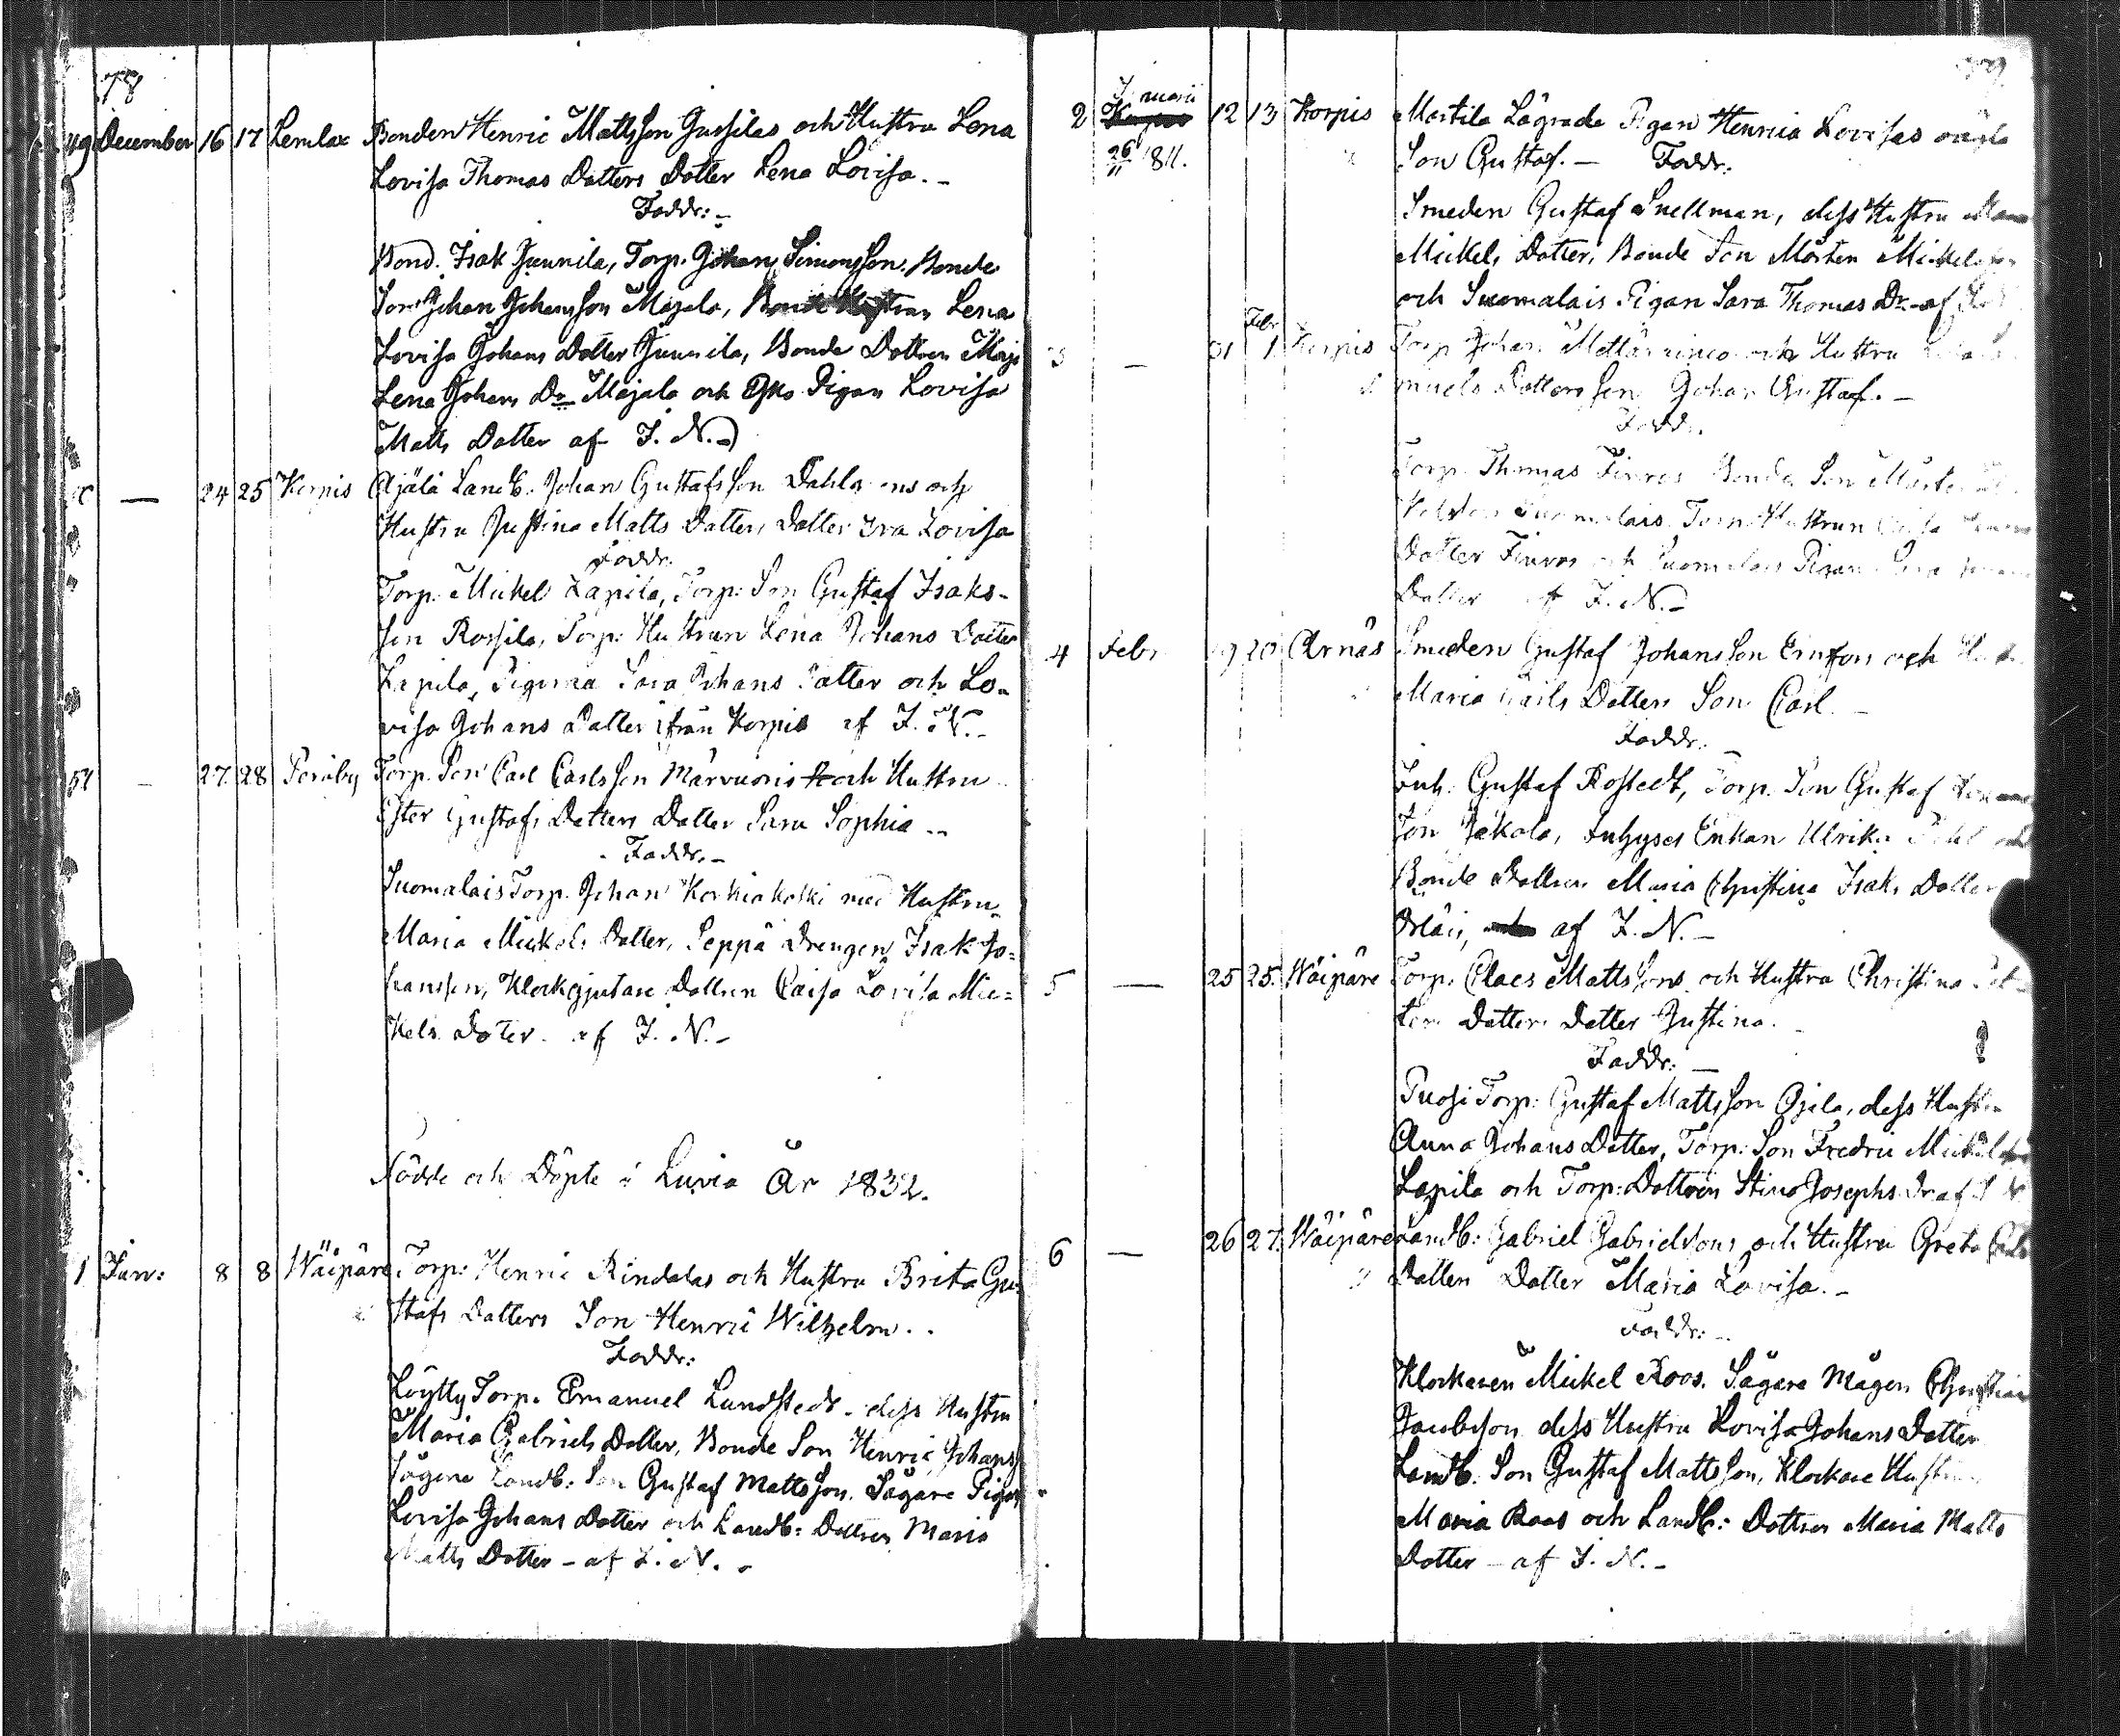 78
49 December 16 17 Lemlax Bonden Henric Mattsson Gussilas och Hustru Lena
Lovisa Thomas Dotters Dotter Lena Lovisa. -
Faddr: -
Bond. Isak Junnila, Torp. Johan Simonsson. Bonde
Son Johan Johansson Majala, Lena
Lovisa Johans Dotter Junnila, Bonde Dottren Maja
Lena Johans Dr Majala och Pigan Lovisa
Matts Dotter af I. N.
— 24 25 Korpis Äjälä Landb. Johan Gustafsson och
Hustru Justina Matts Dotters Dotter Eva Lovisa
Faddr.
Torp. Mickel Lapila, Torp: Son Gustaf Isaks-
son Rossila, Torp: Hustrun Lena Johans Dotter
Lapila, Pigorna Sara Johans Dotter och Lo-
visa Johans Dotter ifrån Korpis af I. N. -
51 - 27 28 Peräby Torp. Son Carl Carlsson och Hustru
Ester Gustafs Dotters Dotter Sara Sophia -
Faddr. -
Suomalais Torp. Johan Korkiakoski med Hustru
Maria Mickels Dotter, Seppä Drengen Isak Jo-
hansson, Klockgjutare Dottren Caisa Lovisa Mic-
kels Doter af I. N. -
Födde och Döpte i Luvia År 1832.
1 Jan: 8 8 Wäipäre Torp: Henric Rindalas och Hustru Brita Gu-
stafs Dotters Son Henric Wilhelm.
Faddr:
Löytty Torp. Emanuel Lundstedt. dess Hustru
Maria Gabriels Dotter, Bonde Son Henric Johans
Sågare Landb: Son Gustaf Mattsson. Sågare Pigan
Lovisa Johans Dotter och Landb: Dottren Maria
Matts Dotter - af I. N. -
79
2 Januarii 12 13 Korpis Martila Lägrade Pigan Henrica Lovisas oägta
26/11 1811. Son Gustaf. — Faddr.
Smeden Gustaf Snellman, dess Hustru
Mickels Dotter, Bonde Son Mårten Mickelsson
och Suomalais Pigan Sara Thomas Dr. af
3 — 31 Febr 1 Korpis Torp Johan och Hustru
muels Dotters son Johan Gustaf. -
Faddr.
Torp. Thomas Finnos Bonde Son Mårten
Suomalais, Torp. Hustrun Caisa
Dotter Finnos och Suomalais Pigan Sara
Dotter af I. N. -
4 Febr 19 20 Arnäs Smeden Gustaf Johansson och
Maria Carls Dotters Son Carl. -
Faddr. -
Inh. Gustaf Rostedt, Torp. Son Gustaf
son Jakola, Inhyses Enkan Ulrika
Bonde Dottren Maria Christina Isaks Dotter
af I. N. -
5 — 25 25. Wäipäre Torp. Claes Mattssons och Hustru Christina
Dotters Dotter Justina.
Faddr: -
Puosi Torp: Gustaf Mattsson Ojila, dess Hustru
Anna Johans Dotter, Torp: Son Fredric Mickelsson
Lapila och Torp: Dottren Stina Josephs Dr af I N
6 — 26 27. Wäipäre Landb: Gabriel Gabrielssons och Hustru Greta
Dotters Dotter Maria Lovisa. -
Faddr: -
Klockaren Mickel Roos. Sågare Mågen Christian
Jacobsson dess Hustru Lovisa Johans Dotter
Landb. Son Gustaf Mattsson, Klockare Hustrun
Maria Roos och Landb: Dottren Maria Matts
Dotter - af I. N. -